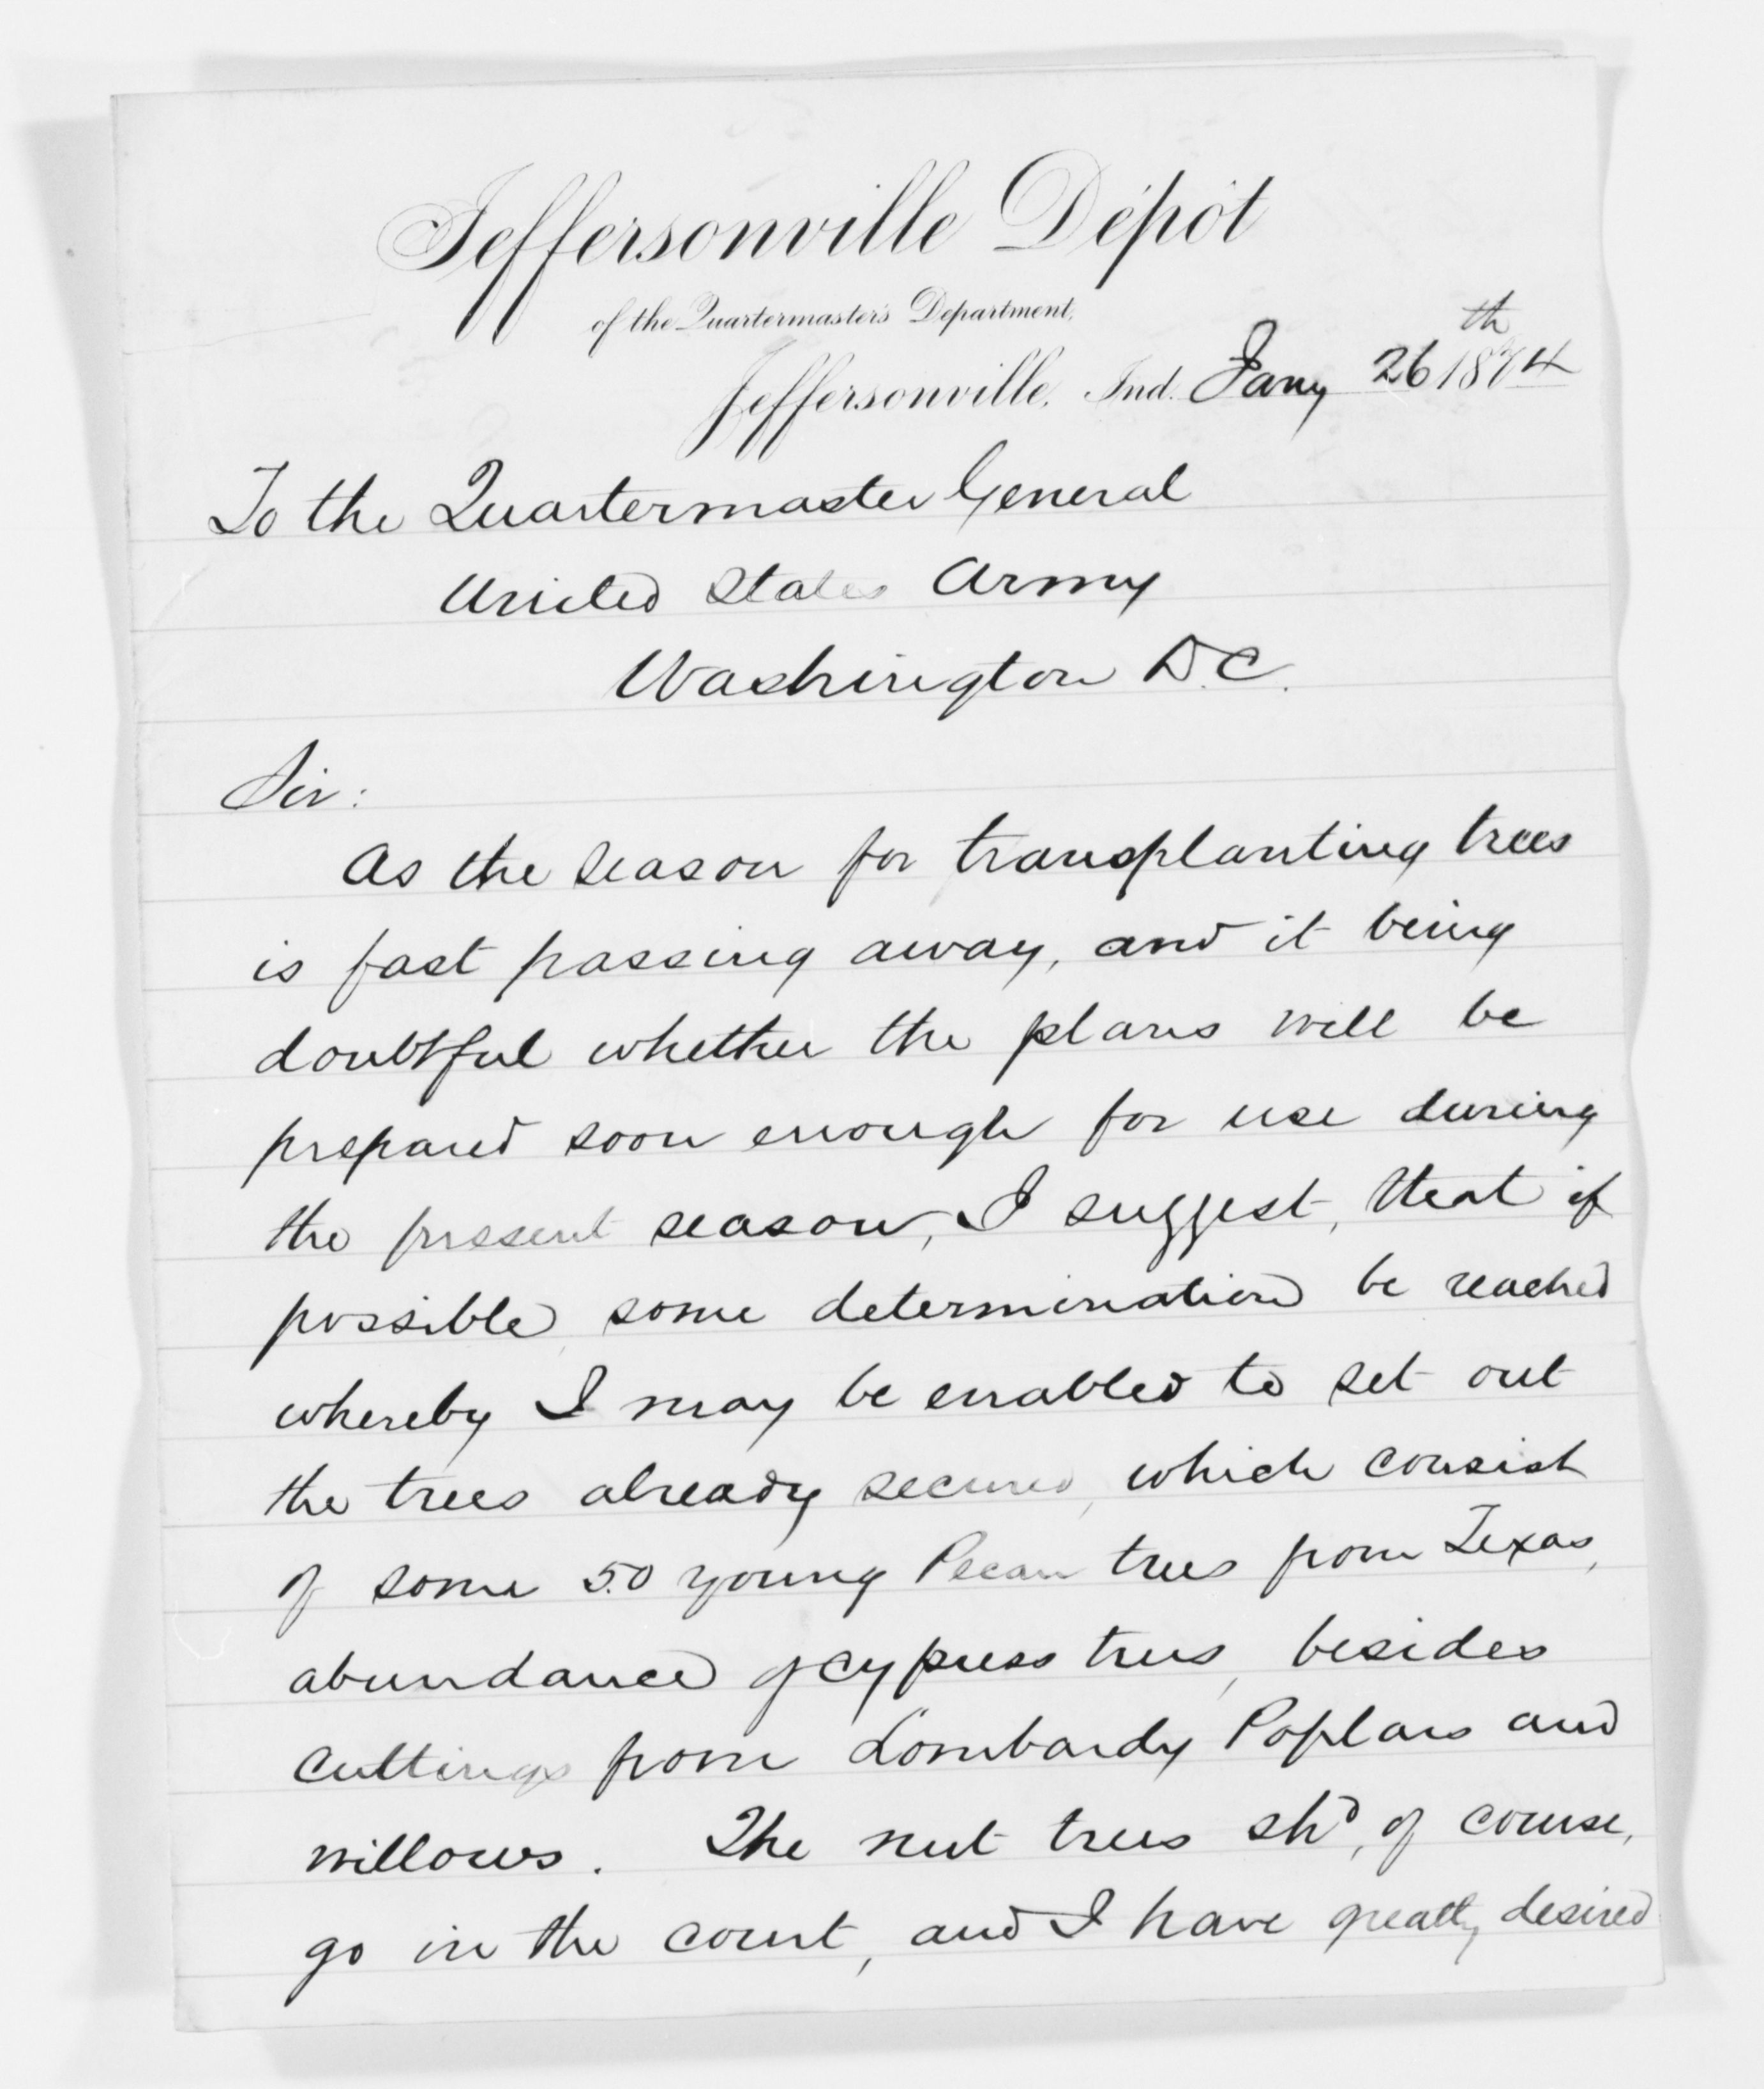 Jeffersonville Dépôt
of the Quartermaster's Department,
Jeffersonville, Ind. Jany 26th 1874
To the Quartermaster General
United States Army
Washington D.C.
Sir:
As the season for transplanting trees
is fast passing away, and it being
doubtful whether the plans will be
prepared soon enough for use during
the present season, I suggest, that if
possible, some determination be reached
whereby I may be enabled to set out
the trees already secured, which consist
of some 50 young Pecan trees from Texas,
abundance of cypress trees, besides
cuttings from Lombardy Poplars and
willows. The nut trees shd, of course,
go in the court, and I have greatly desired